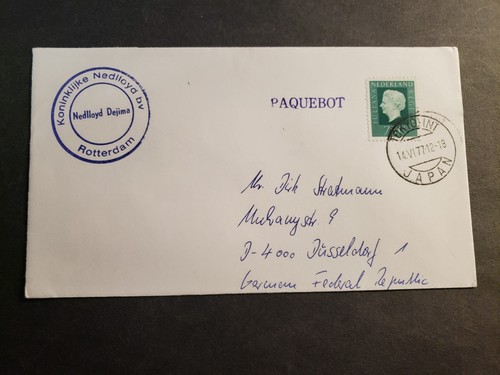 Koninklijke Nedlloyd bv
Nedlloyd Dejima
Rotterdam
PAQUEBOT
NEDERLAND
JULIANA REGINA
TOKYO-INT
14.VI.77.12-18
JAPAN
Mr. Dirk Stratmann
9
D-4000 Düsseldorf 1
German Federal Republic